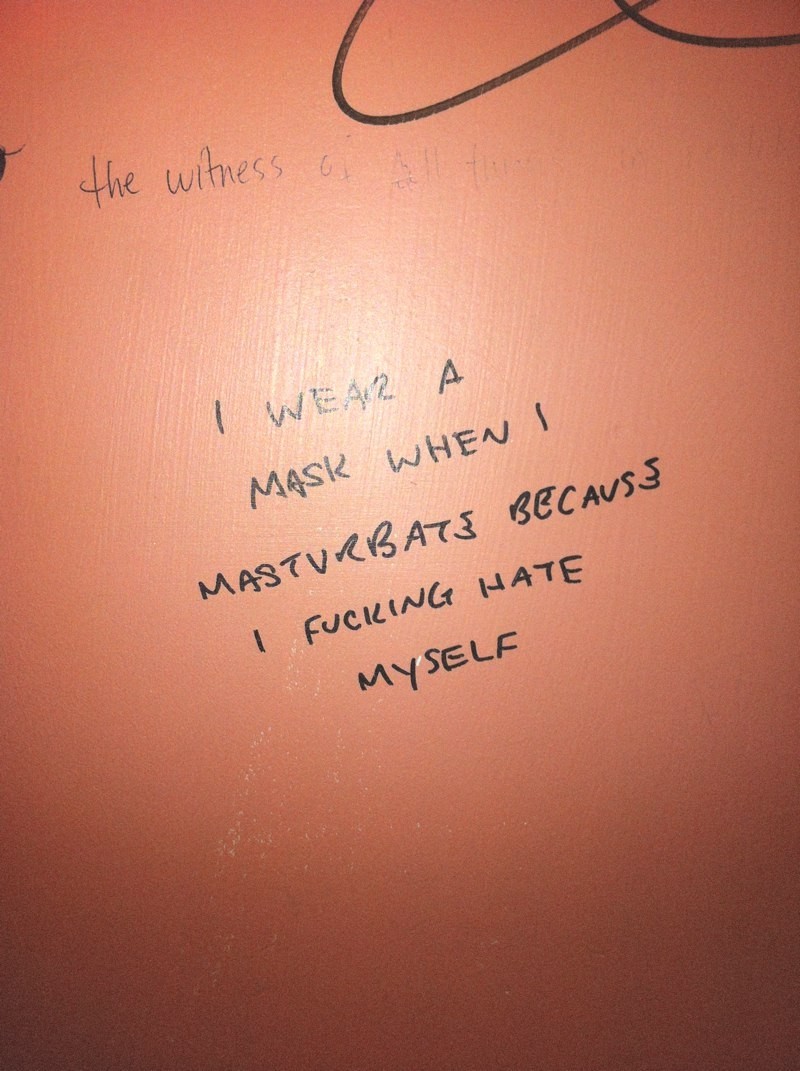 the witness of All
I WEAR A
MASK WHEN I
MASTURBATE BECAUSE
I FUCKING HATE
MYSELF